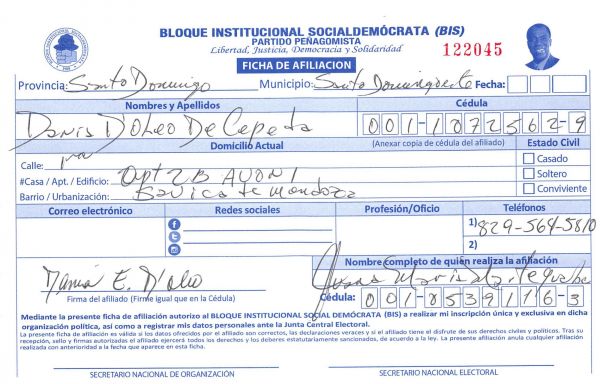 BLOQUE INSTITUCIONAL SOCIALDEMÓCRATA (BIS)
PARTIDO PEÑAGOMISTA
Libertad, Justicia, Democracia y Solidaridad
122045
FICHA DE AFILIACION
Provincia: Santo Domingo Municipio: Santo Domingo Fecha:
Nombres y Apellidos Cédula
D'Oleo De Cepeda 001-1072562-9
Domicilio Actual (Anexar copia de cédula del afiliado) Estado Civil
Calle: Casado
#Casa / Apt. / Edificio: Apt 2B Soltero
Barrio / Urbanización: de Mendoza Conviviente
Correo electrónico Redes sociales Profesión/Oficio Teléfonos
1) 829-564-5810
2)
Nombre completo de quién realiza la afiliación
E. D'Oleo
Firma del afiliado (Firme igual que en la Cédula) Cédula: 001-0539116-3
Mediante la presente ficha de afiliación autorizo al BLOQUE INSTITUCIONAL SOCIALDEMÓCRATA (BIS) a realizar mi inscripción única y exclusiva en dicha
organización política, así como a registrar mis datos personales ante la Junta Central Electoral.
La presente afiliación es válida si los datos ofrecidos por el afiliado son correctos, las declaraciones veraces y si el afiliado tiene el disfrute de sus derechos civiles y políticos. Tras su
recepción, sello y firmas autorizadas el afiliado ejercerá todos los derechos y los deberes estatutariamente sancionados, de acuerdo a la ley. La presente afiliación anula cualquier afiliación
realizada con anterioridad a la fecha que aparece en esta ficha.
SECRETARIO NACIONAL DE ORGANIZACIÓN SECRETARIO NACIONAL ELECTORAL